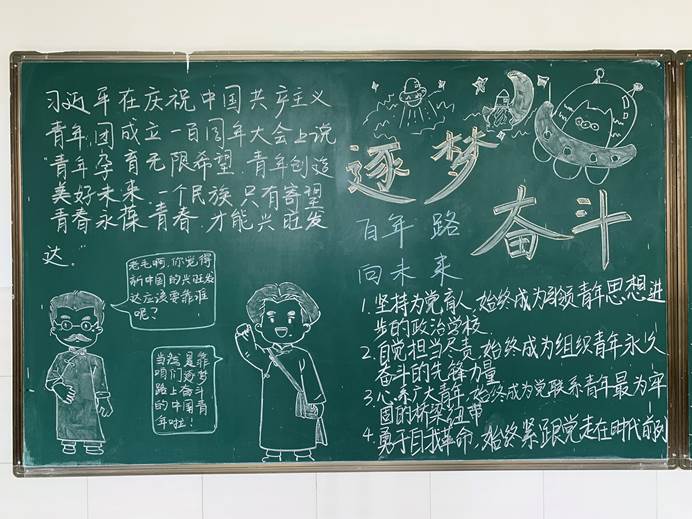 习近平在庆祝中国共产主义
青年团成立一百周年大会上说
"青年孕育无限希望，青年创造
美好未来.一个民族只有寄望
青春永葆青春，才能兴旺发
达."
老毛啊，你觉得
新中国的兴旺发
达应该要靠谁
呢？
当然是靠
咱们逐梦
路上奋斗
的中国青
年啦！
逐梦
奋斗
百年路
向未来
1.坚持为党育人，始终成为引领青年思想进
步的政治学校.
2.自觉担当尽责，始终成为组织青年永久
奋斗的先锋力量
3.心系广大青年，始终成为党联系青年最为牢
固的桥梁纽带
4.勇于自我革命，始终紧跟党走在时代前列